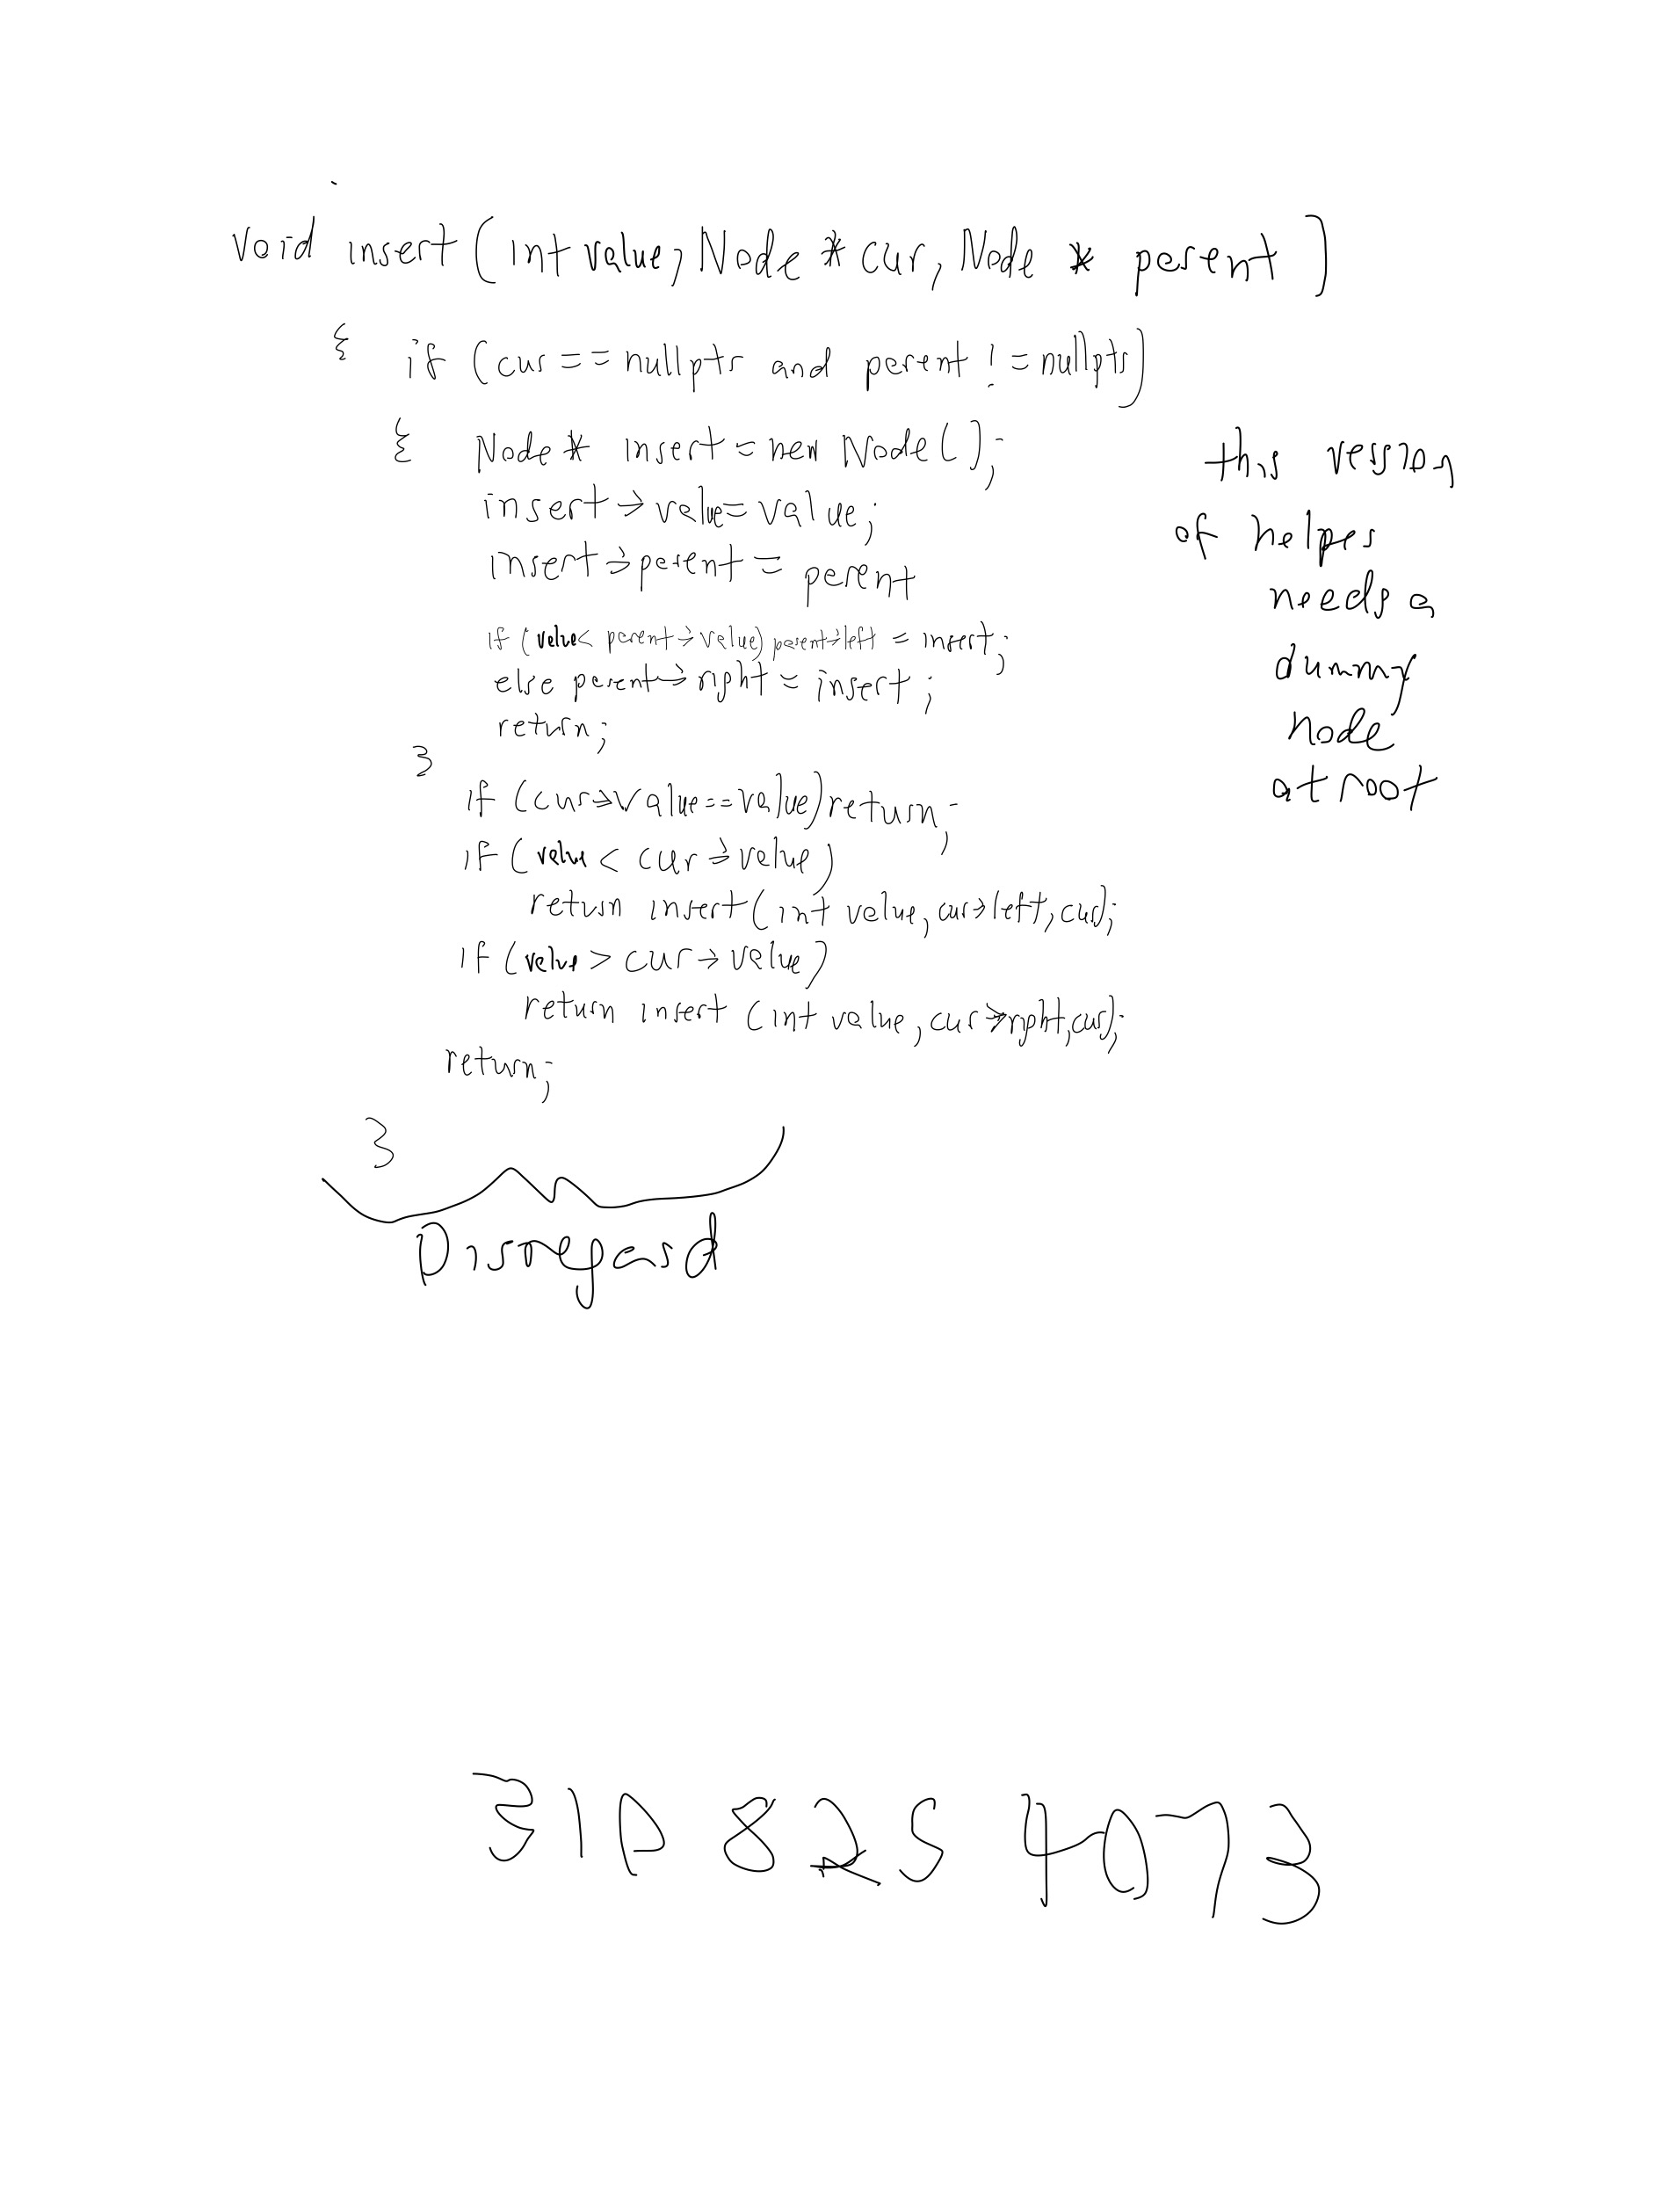 void insert(int value, Node * cur, Node * parent)
{ if (cur == nullptr and parent != nullptr)
{ Node* insert = new Node();
insert→value=value;
insert→parent = parent
if (value< parent→value) parent→left = insert;
else parent→right = insert;
return;
}
if (cur→value==value)return;
if (value < cur→value)
return insert(int value, cur→left, cur);
if (value > cur→value)
return insert (int value, cur→right, cur);
return;
}
Disregard
this version
of helper
needs a
dummy
node
at root
310 825 4073